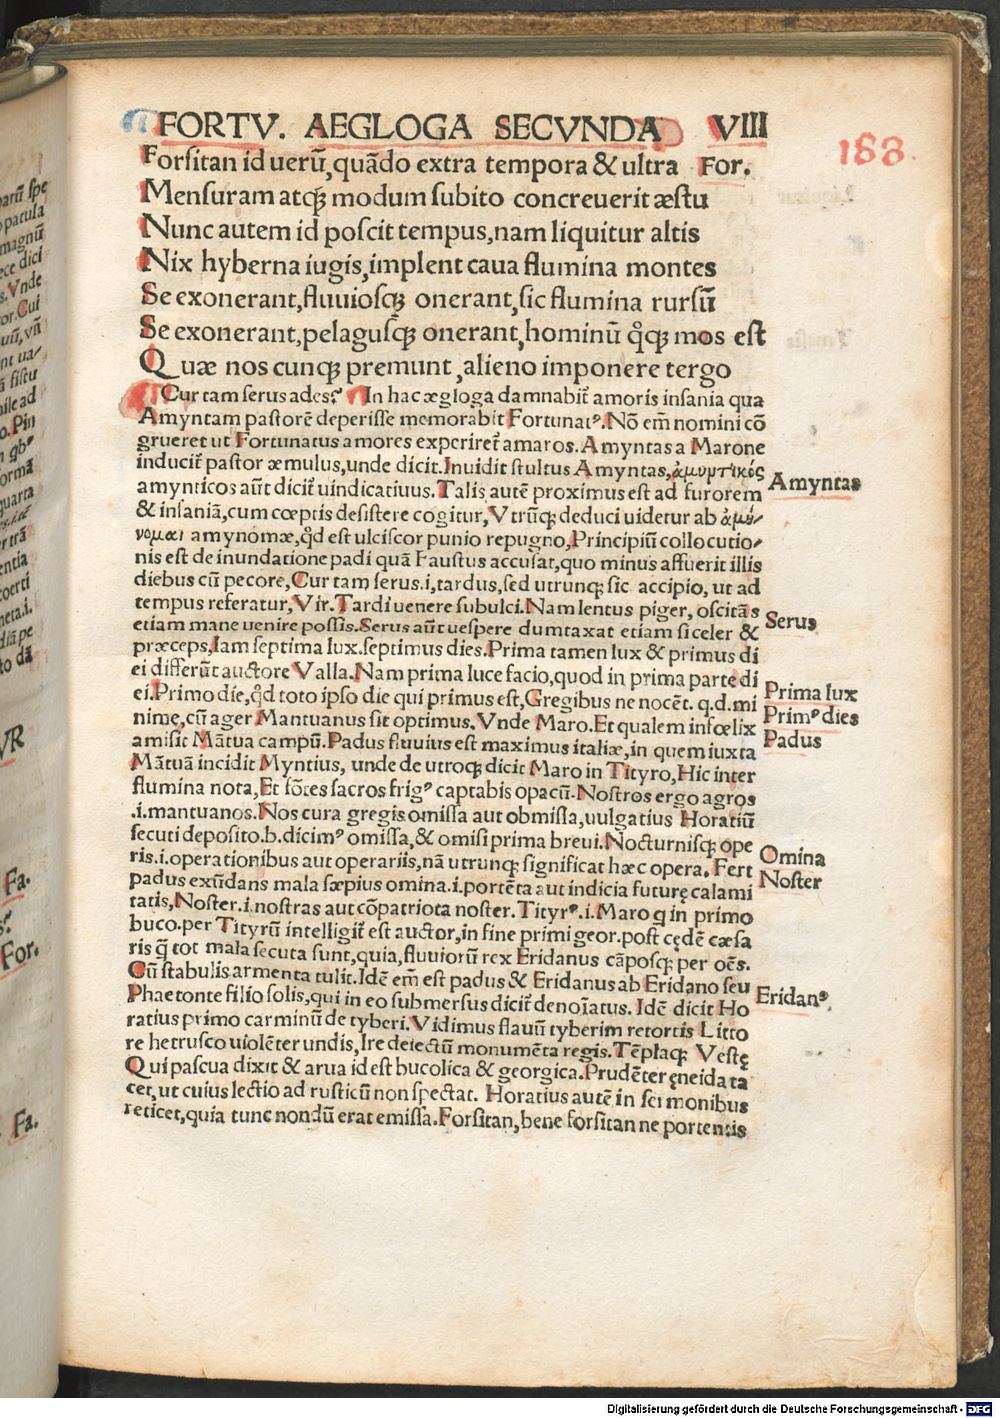 FORTV. AEGLOGA SECVNDA VIII
188.
Forsitan id uerũ,quãdo extra tempora & ultra For.
Mensuram atqꝫ modum subito concreuerit æstu
Nunc autem id poscit tempus,nam liquitur altis
Nix hyberna iugis,implent caua flumina montes
Se exonerant,fluuiosqꝫ onerant,sic flumina rursũ
Se exonerant,pelagusqꝫ onerant,hominũ q̊qꝫ mos est
Quæ nos cunqꝫ premunt,alieno imponere tergo
Cur tam serus ades? In hac ægloga damnabit᷑ amoris insania qua
Amyntam pastorẽ deperisse memorabit Fortunatꝰ.Nõ em̃ nomini cõ
grueret ut Fortunatus amores experiret᷑ amaros.Amyntas a Marone
inducit᷑ pastor æmulus,unde dicit.Inuidit stultus Amyntas,ἀμυντικός
amynticos aũt dicit᷑ uindicatiuus.Talis autẽ proximus est ad furorem
Amyntas
& insaniã,cum cœptis desistere cogitur,Vtrũqꝫ deduci uidetur ab ἀμύ/
νομαι amynomæ,q̊d est ulciscor punio repugno,Principiũ collocutio/
nis est de inundatione padi quã Faustus accusat,quo minus affuerit illis
diebus cũ pecore,Cur tam serus.i,tardus,sed utrunqꝫ sic accipio,ut ad
tempus referatur,Vir.Tardi uenere subulci.Nam lentus piger, oscitãs
etiam mane uenire possis.Serus aũt uespere dumtaxat etiam si celer &
Serus
præceps,Iam septima lux.septimus dies.Prima tamen lux & primus di
ei differũt auctore Valla.Nam prima luce facio,quod in prima parte di
ei.Primo die,q̊d toto ipso die qui primus est,Gregibus ne nocẽt. q.d.mi
Prima lux
nime,cũ ager Mantuanus sit optimus.Vnde Maro.Et qualem infœlix
Primꝰ dies
amisit Mãtua campũ.Padus fluuius est maximus italiæ,in quem iuxta
Padus
Mãtuã incidit Myntius, unde de utroqꝫ dicit Maro in Tityro,Hic inter
flumina nota,Et fõtes sacros frigꝰ captabis opacũ.Nostros ergo agros
.i.mantuanos.Nos cura gregis omissa aut obmissa,uulgatius Horatiũ
secuti deposito.b.dicimꝰ omissa,& omisi prima breui.Nocturnisqꝫ ope
ris.i.operationibus aut operariis,nã utrunqꝫ significat hæc opera.Fert
Omina
padus exũdans mala sæpius omina.i.portẽta aut indicia futurę calami
Noster
tatis,Noster.i.nostras aut cõpatriota noster.Tityrꝰ.i.Maro q in primo
buco.per Tityrũ intelligit᷑ est auctor,in fine primi geor.post cędẽ cæsa
ris q̃ tot mala secuta sunt,quia,fluuiorũ rex Eridanus cãposqꝫ per oẽs.
Cũ stabulis armenta tulit.Idẽ em̃ est padus & Eridanus ab Eridano seu
Phaetonte filio solis,qui in eo submersus dicit᷑ denoĩatus. Idẽ dicit Ho
Eridanꝰ.
ratius primo carminũ de tyberi.Vidimus flauũ tyberim retortis Litto
re hetrusco uiolẽter undis,Ire deiectũ monumẽta regis.Tẽplaqꝫ Vestę
Qui pascua dixit & arua id est bucolica & georgica.Prudẽter ęneida ta
cet,ut cuius lectio ad rusticũ non spectat. Horatius autẽ in sermonibus
reticet,quia tunc nondũ erat emissa.Forsitan,bene forsitan ne portentis
Digitalisierung gefördert durch die Deutsche Forschungsgemeinschaft - DFG